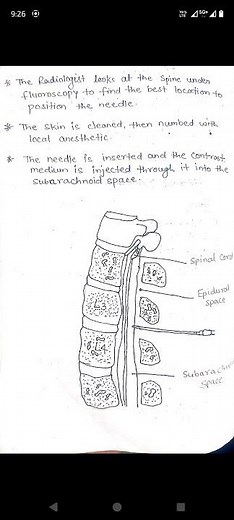 9:26
5G+
* The Radiologist looks at the spine under
fluoroscopy to find the best location to
position the needle.
* The skin is cleaned, then numbed with
local anesthetic.
* The needle is inserted and the contrast
medium is injected through it into the
subarachnoid space.
Spinal Cord
Epidural
space
L3
L4
Subarachnoid
space